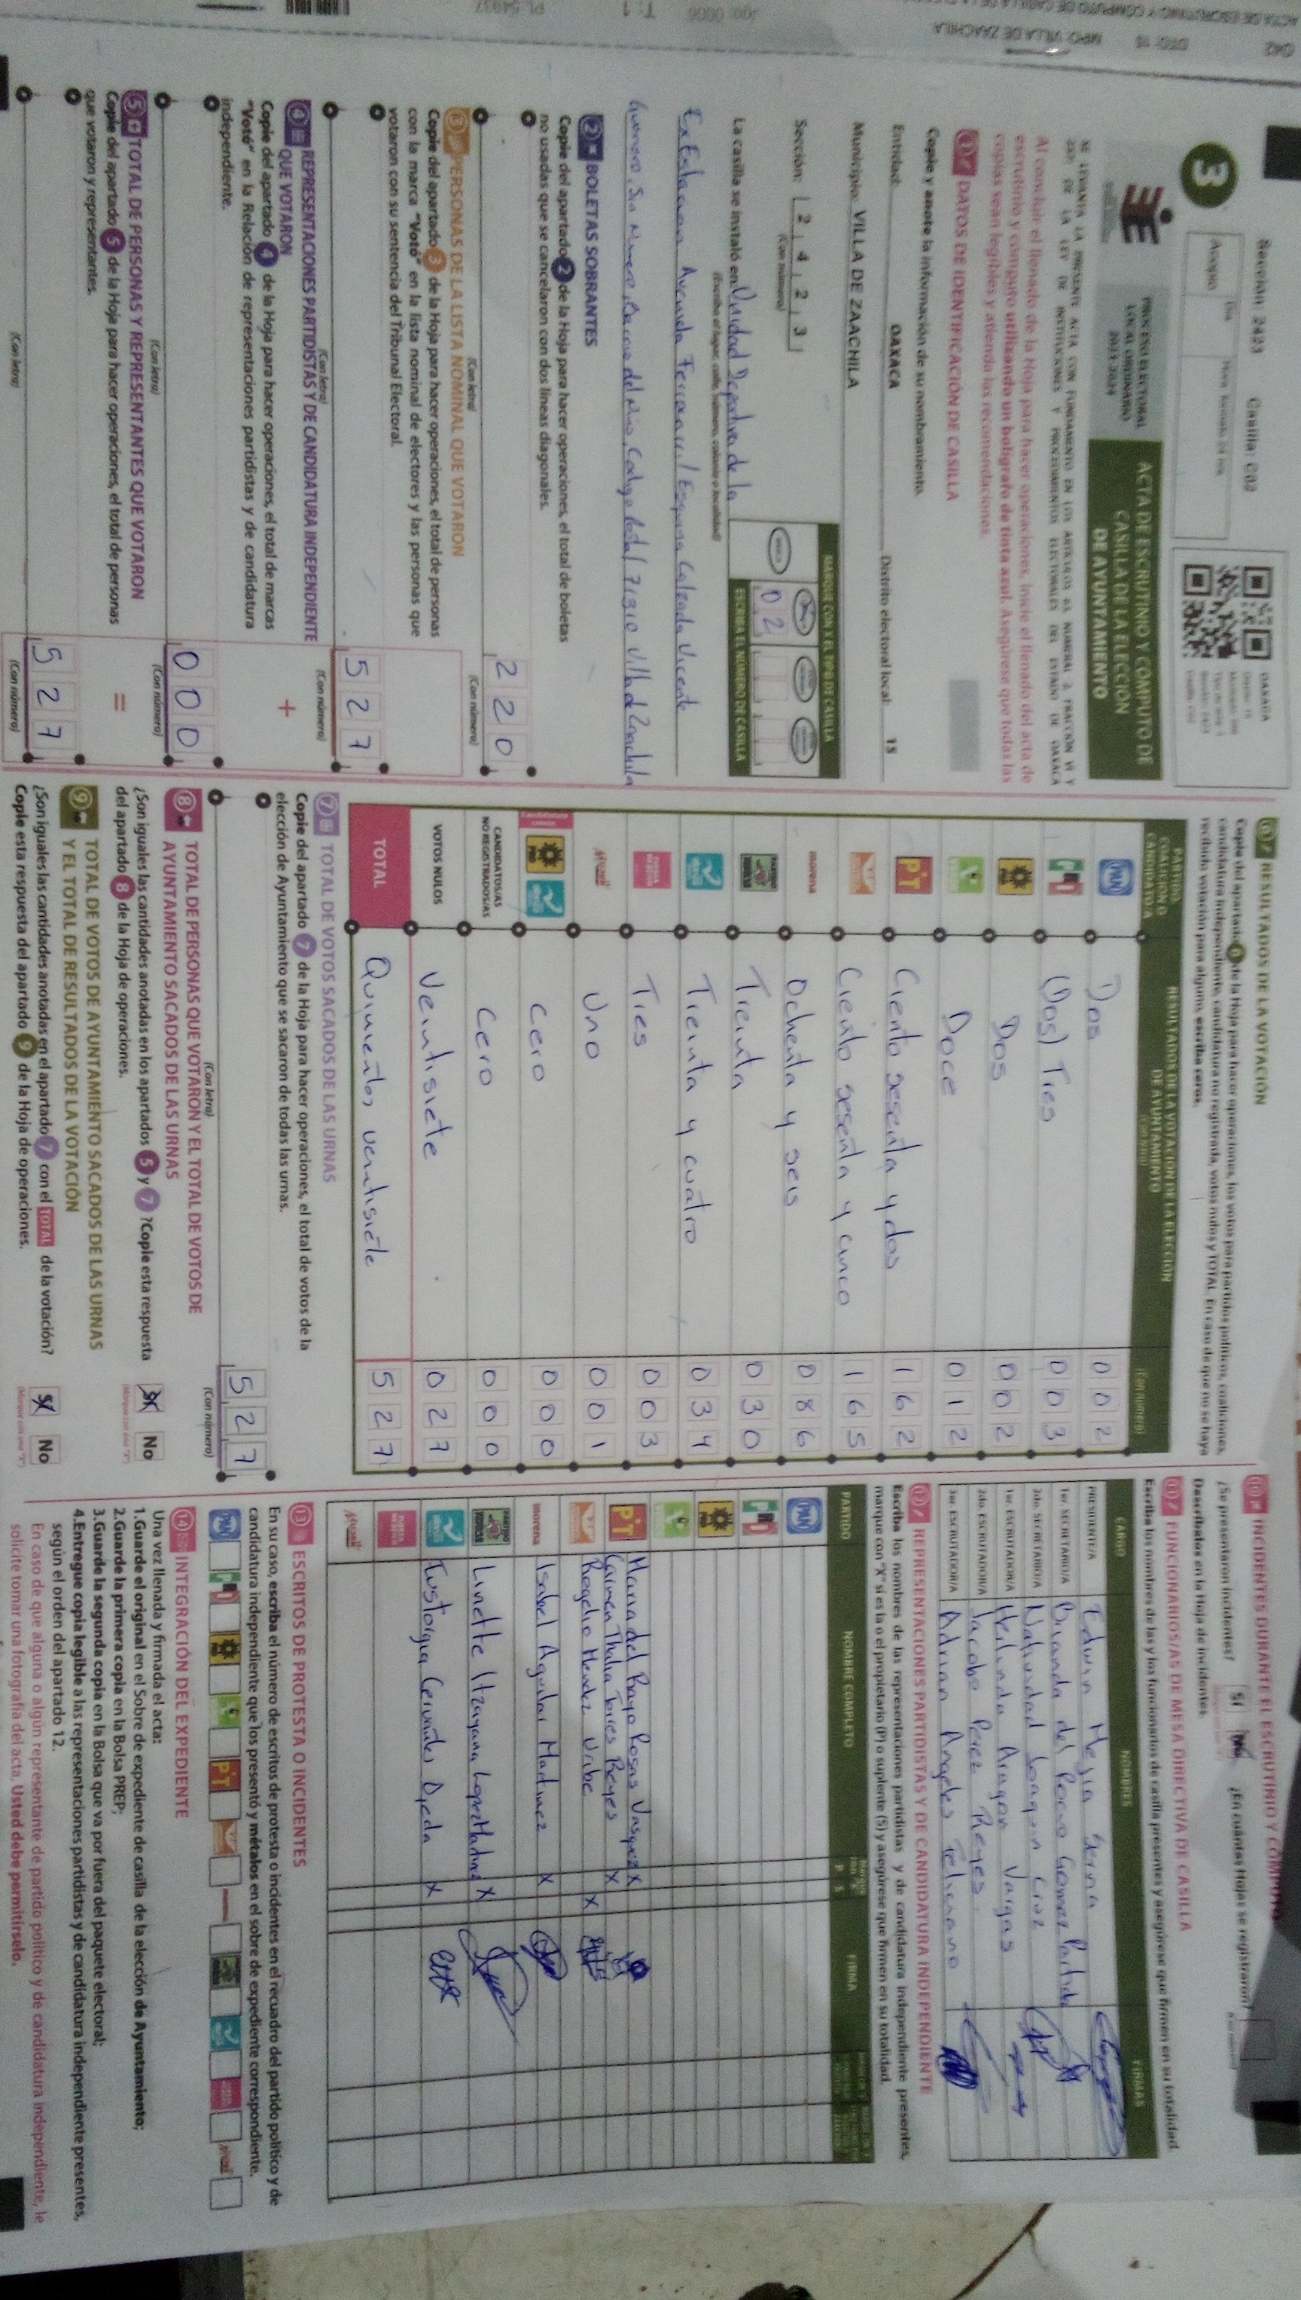 Sección: 2423 Casilla: C02
OAXACA
3
Acopio
PROCESO ELECTORAL
LOCAL ORDINARIO
2023-2024
ACTA DE ESCRUTINIO Y CÓMPUTO DE
CASILLA DE LA ELECCIÓN
DE AYUNTAMIENTO
SE LEVANTA LA PRESENTE ACTA CON FUNDAMENTO EN LOS ARTÍCULOS
Al concluir el llenado de la Hoja para hacer operaciones, inicie el llenado del acta de
escrutinio y cómputo utilizando un bolígrafo de tinta azul. Asegúrese que todas las
copias sean legibles y atienda las recomendaciones.
1 DATOS DE IDENTIFICACIÓN DE CASILLA
Copie y anote la información de su nombramiento.
Entidad: OAXACA Distrito electoral local: 15
Municipio: VILLA DE ZAACHILA
Sección: 2 4 2 3
(Con número)
MARQUE CON X EL TIPO DE CASILLA
ESCRIBA EL NÚMERO DE CASILLA
0 2
La casilla se instaló en: Unidad Deportiva de la
(Escriba el lugar, calle, número, colonia o localidad)
Ex Estacion Avenida Ferrocarril Esquina Calzada Vicente
Guerrero, Sin Numero, Barrio del Niño, Codigo Postal 71310 Villa de Zaachila
2 BOLETAS SOBRANTES
Copie del apartado 2 de la Hoja para hacer operaciones, el total de boletas
no usadas que se cancelaron con dos líneas diagonales.
220
(Con letra) (Con número)
3 PERSONAS DE LA LISTA NOMINAL QUE VOTARON
Copie del apartado 3 de la Hoja para hacer operaciones, el total de personas
con la marca "Votó" en la lista nominal de electores y las personas que
votaron con su sentencia del Tribunal Electoral.
527
(Con letra) (Con número)
4 REPRESENTACIONES PARTIDISTAS Y DE CANDIDATURA INDEPENDIENTE
QUE VOTARON
+
Copie del apartado 4 de la Hoja para hacer operaciones, el total de marcas
"Votó" en la Relación de representaciones partidistas y de candidatura
independiente.
000
(Con letra) (Con número)
5 TOTAL DE PERSONAS Y REPRESENTANTES QUE VOTARON
=
Copie del apartado 5 de la Hoja para hacer operaciones, el total de personas
que votaron y representantes.
527
(Con letra) (Con número)
6 RESULTADOS DE LA VOTACIÓN
Copie del apartado 6 de la Hoja para hacer operaciones, los votos para partidos políticos, coaliciones,
candidatura independiente, candidatura no registrada, votos nulos y TOTAL. En caso de que no se haya
recibido votación para alguno, escriba ceros.
PARTIDO,
COALICIÓN O
CANDIDATO/A
RESULTADOS DE LA VOTACIÓN DE LA ELECCIÓN
DE AYUNTAMIENTO
(Con letra)
(Con número)
PAN Dos 002
PRI (Dos) Tres 003
PRD Dos 002
Doce 012
PT Ciento sesenta y dos 162
Ciento sesenta y cinco 165
morena Ochenta y seis 086
Treinta 030
Treinta y cuatro 034
Tres 003
Uno 001
Cero 000
CANDIDATOS/AS
NO REGISTRADOS/AS Cero 000
VOTOS NULOS Veintisiete 027
TOTAL Quinientos veintisiete 527
7 TOTAL DE VOTOS SACADOS DE LAS URNAS
Copie del apartado 7 de la Hoja para hacer operaciones, el total de votos de la
elección de Ayuntamiento que se sacaron de todas las urnas.
527
(Con letra) (Con número)
8 TOTAL DE PERSONAS QUE VOTARON Y EL TOTAL DE VOTOS DE
AYUNTAMIENTO SACADOS DE LAS URNAS
¿Son iguales las cantidades anotadas en los apartados 5 y 7? Copie esta respuesta
del apartado 8 de la Hoja de operaciones.
Sí No
9 TOTAL DE VOTOS DE AYUNTAMIENTO SACADOS DE LAS URNAS
Y EL TOTAL DE RESULTADOS DE LA VOTACIÓN
¿Son iguales las cantidades anotadas en el apartado 7 con el TOTAL de la votación?
Copie esta respuesta del apartado 9 de la Hoja de operaciones.
Sí No
10 INCIDENTES DURANTE EL ESCRUTINIO Y CÓMPUTO
¿Se presentaron incidentes? Sí No ¿En cuántas Hojas se registraron?
Descríbalos en la Hoja de incidentes.
11 FUNCIONARIOS/AS DE MESA DIRECTIVA DE CASILLA
Escriba los nombres de las y los funcionarios de casilla presentes y asegúrese que firmen en su totalidad.
CARGO NOMBRES FIRMAS
PRESIDENTE/A Edwin Mejia Serna
1er SECRETARIO/A Brianda del Rocio Gomez
2do SECRETARIO/A Natividad Joaquin Cruz
1er ESCRUTADOR/A Herlinda Aragon Vargas
2do ESCRUTADOR/A Jacobo Perez Reyes
3er ESCRUTADOR/A Adrian Angeles Feliciano
12 REPRESENTACIONES PARTIDISTAS Y DE CANDIDATURA INDEPENDIENTE
Escriba los nombres de las representaciones partidistas y de candidatura independiente presentes,
marque con "X" si es la o el propietario (P) o suplente (S) y asegúrese que firmen en su totalidad.
PARTIDO NOMBRE COMPLETO P S FIRMA
PAN
PRI
PRD
PT Maria del Rayo Rosas Vasquez X
Carmen Thalia Torres Reyes X
Rogelio Mendez Uribe X
morena Isabel Aguilar Martinez X
Linette Itzayana Lopez Martinez X
Eustorgia Cervantes Ojeda X
13 ESCRITOS DE PROTESTA O INCIDENTES
En su caso, escriba el número de escritos de protesta o incidentes en el recuadro del partido político y de
candidatura independiente que los presentó y métalos en el sobre de expediente correspondiente.
14 INTEGRACIÓN DEL EXPEDIENTE
Una vez llenada y firmada el acta:
1.Guarde el original en el Sobre de expediente de casilla de la elección de Ayuntamiento;
2.Guarde la primera copia en la Bolsa PREP;
3.Guarde la segunda copia en la Bolsa que va por fuera del paquete electoral;
4.Entregue copia legible a las representaciones partidistas y de candidatura independiente presentes,
según el orden del apartado 12.
En caso de que alguna o algún representante de partido político y de candidatura independiente, le
solicite tomar una fotografía del acta, Usted debe permitírselo.